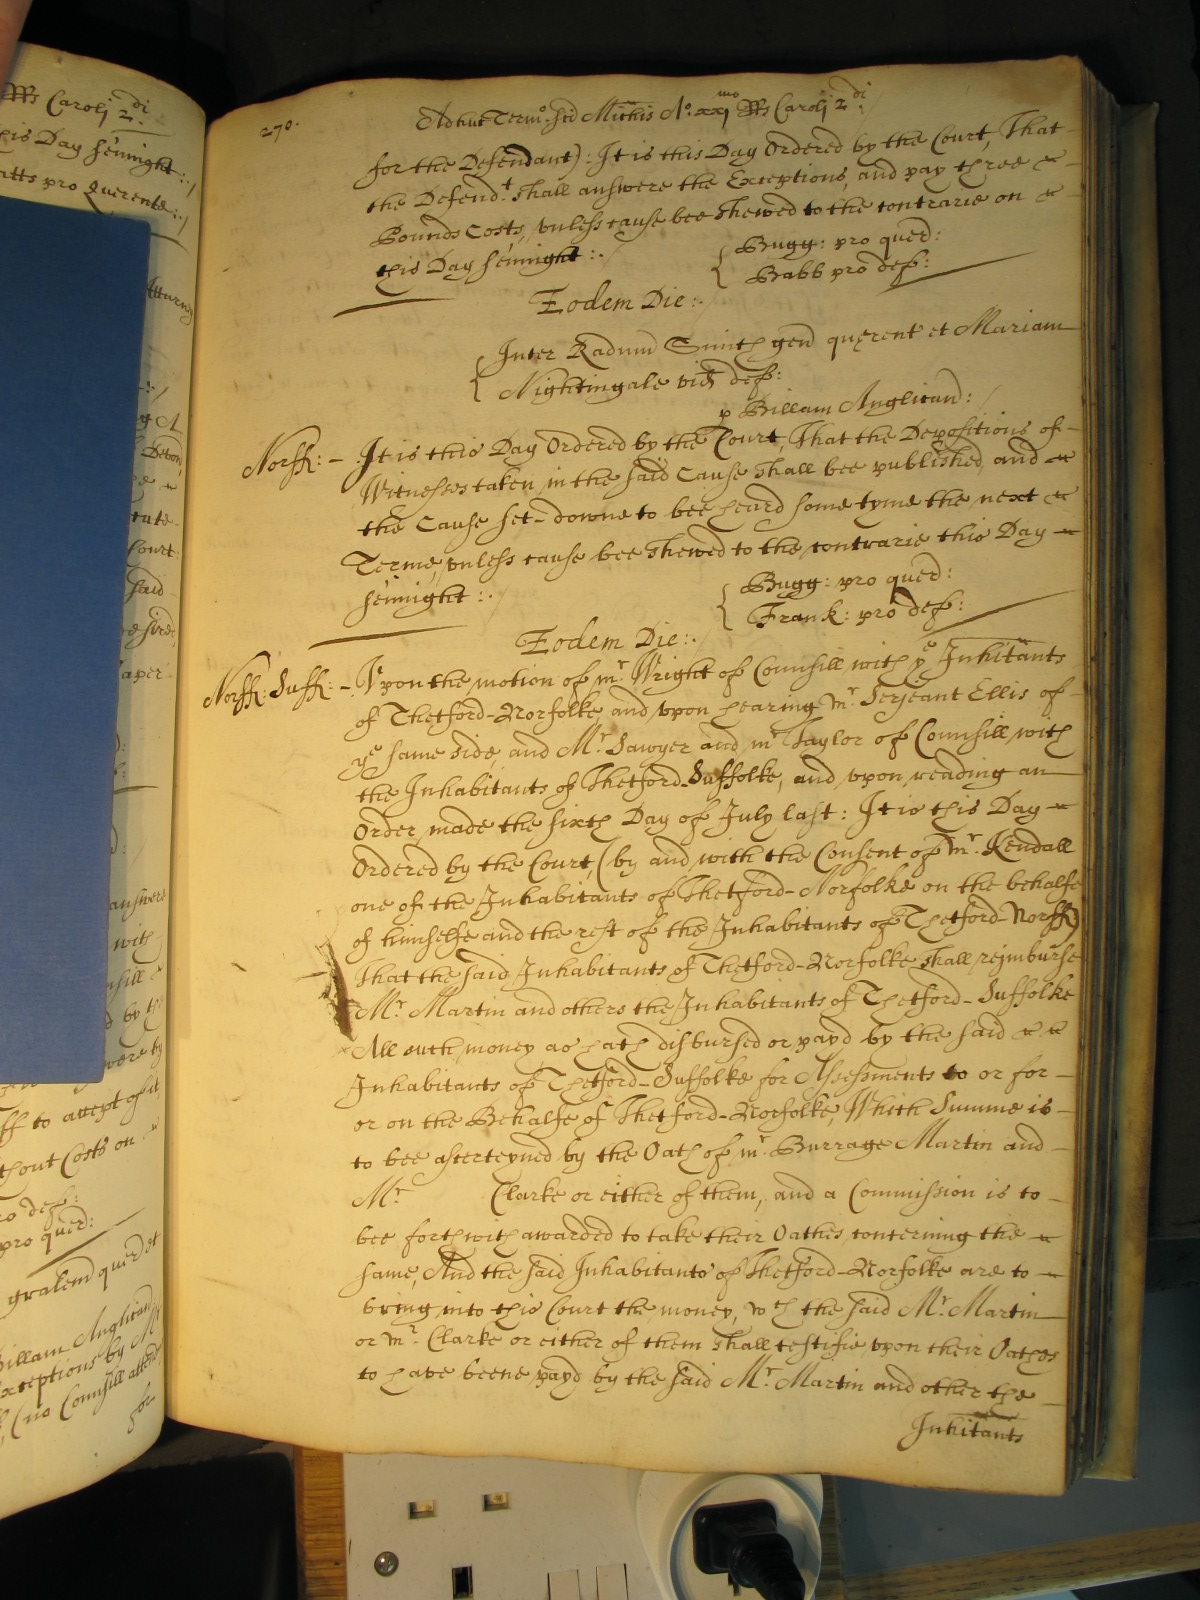 Rs Caroli 2.di
this Day sennight :/
pro Querente :/
Attorney
Devon
Court
said
answere
with
by the
were by
to accept of it,
without Costs on
pro def:
pro quer:
gralem quer et
Billam Anglican
Exceptions by Mr
(no Counsill attend
for
270.
Adhuc Term: Sci Michis Ao. xxj mo Rs Caroli 2.di
for the Defendant): It is this Day Ordered by the Court, That
the Defend.t shall answere the Exceptions, and pay three
Pounds Costs, vnless cause bee shewed to the contrarie on
this Day sennight :./
Bugg: pro quer:
Babb pro def:
Eodem Die:.
Inter Radum Smith gen querent et Mariam
Nightingale vid def:
p Billam Anglican: /
Norff: - It is this Day Ordered by the Court, That the Depositions of
Witnesses taken in the said Cause shall bee published, and
the Cause set-downe to bee heard some tyme the next
Terme, vnless cause bee shewed to the contrarie this Day
sennight :./
Bugg: pro quer:
Frank: pro def:
Eodem Die:.
Norff: Suff: - Vpon the motion of mr. Wright of Counsill with ye Inhitants
of Thetford-Norfolke, and vpon hearing Mr. Serjeant Ellis of
ye same side, and Mr. Sawyer and mr. Taylor of Counsill with
the Inhabitants of Thetford-Suffolke, and vpon reading an
Order made the sixth Day of July last: It is this Day
Ordered by the Court, (by and with the Consent of Mr. Kendall
one of the Inhabitants of Thetford-Norfolke on the behalfe
of himselfe and the rest of the Inhabitants of Thetford-Norff)
That the said Inhabitants of Thetford-Norfolke shall reimburse
Mr. Martin and others the Inhabitants of Thetford-Suffolke
All such money as hath disbursed or payd by the said
Inhabitants of Thetford-Suffolke for Assessments to or for
or on the Behalfe of Thetford-Norfolke, Which Summe is
to bee asserteyned by the Oath of mr. Burrage Martin and
Mr Clarke or either of them, and a Commission is to
bee forthwith awarded to take their Oathes concerning the
same, And the said Inhabitants of Thetford-Norfolke are to
bring into this Court the money, wch the said Mr. Martin
or mr. Clarke or either of them shall testifie vpon their Oathes
to have beene payd by the said Mr. Martin and other the
Inhitants